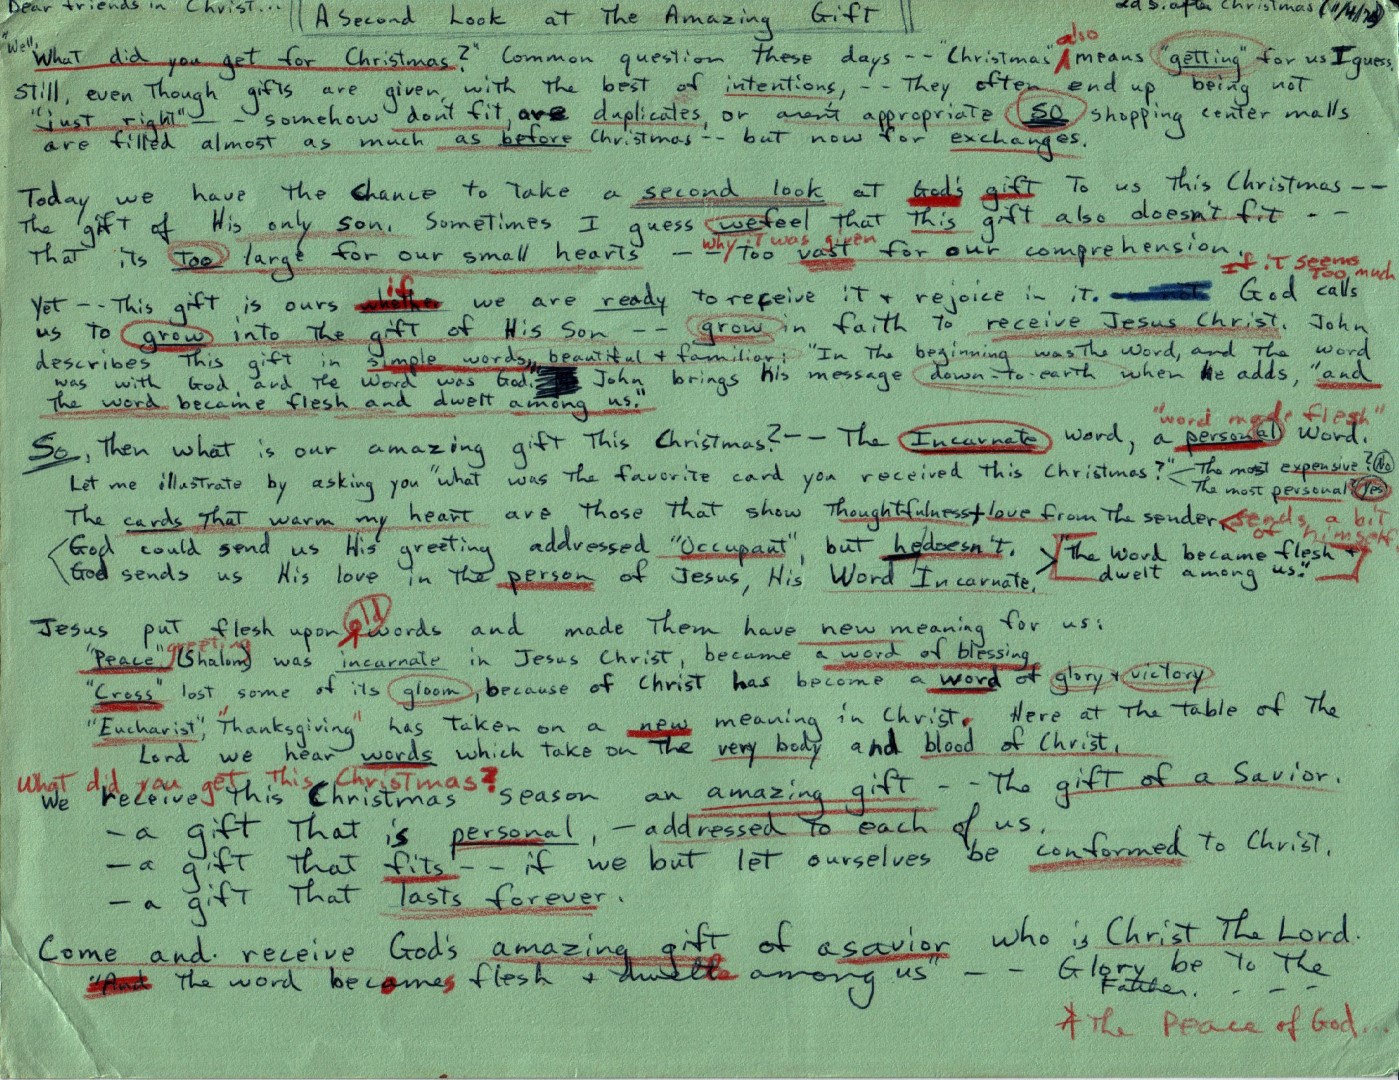 Dear friends in Christ... A Second Look at The Amazing Gift 2d S. after Christmas
"Well," "What did you get for Christmas?" Common question These days -- "Christmas" also means "getting" for us I guess
Still, even Though gifts are given with the best of intentions, -- They often end up being not
"just right" -- somehow don't fit, are duplicates, or aren't appropriate So shopping center malls
are filled almost as much as before Christmas -- but now for exchanges.
Today we have the Chance to Take a second look at God's gift To us This Christmas --
The gift of His only son. Sometimes I guess we feel that this gift also doesn't fit --
That its Too large for our small hearts -- Too vast for our comprehension.
why it was given
If it seems Too much
Yet -- This gift is ours if we are ready to receive it + rejoice in it. God calls
us to grow into the gift of His Son -- grow in faith To receive Jesus Christ. John
describes This gift in simple words, beautiful + familiar: "In The beginning was The Word, and The word
was with God and The Word was God." John brings his message down-to-earth when he adds, "and
The word became flesh and dwelt among us."
"word made flesh"
So, Then what is our amazing gift This Christmas? -- The Incarnate word, a personal word.
Let me illustrate by asking you "what was The favorite card you received This Christmas?" The most expensive? No
The most personal? Yes
The cards That warm my heart are Those That show Thoughtfulness + love from The sender sends a bit
of himself
God could send us His greeting addressed "Occupant", but he doesn't. "The Word became flesh +
God sends us His love in The person of Jesus, His Word Incarnate. dwelt among us."
Jesus put flesh upon old words and made Them have new meaning for us:
"Peace" greeting (Shalom) was incarnate in Jesus Christ, became a word of blessing
"Cross" lost some of its gloom, because of Christ has become a word of glory + victory
"Eucharist", "Thanksgiving" has Taken on a new meaning in Christ. Here at The Table of The
Lord we hear words which Take on The very body and blood of Christ.
What did you get This Christmas?
We receive This Christmas season an amazing gift -- The gift of a Savior.
- a gift That is personal, - addressed To each of us.
- a gift That fits -- if we but let ourselves be conformed to Christ.
- a gift That lasts forever.
Come and receive God's amazing gift of a savior who is Christ The Lord.
"And The word becomes flesh + dwells among us" -- Glory be To The
Father. - - -
The Peace of God...